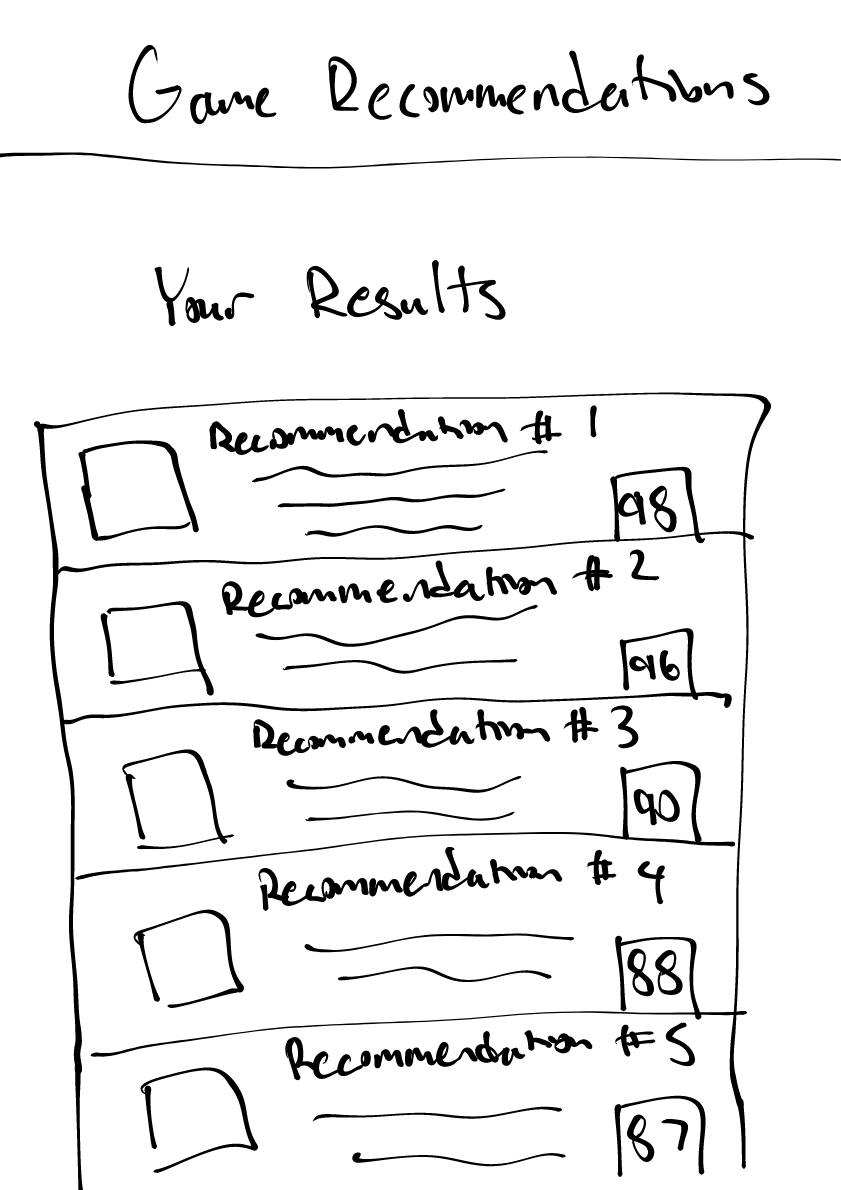 Game Recommendations
Your Results
Recommendation # 1
98
Recommendation # 2
96
Recommendation # 3
90
Recommendation # 4
88
Recommendation # 5
87